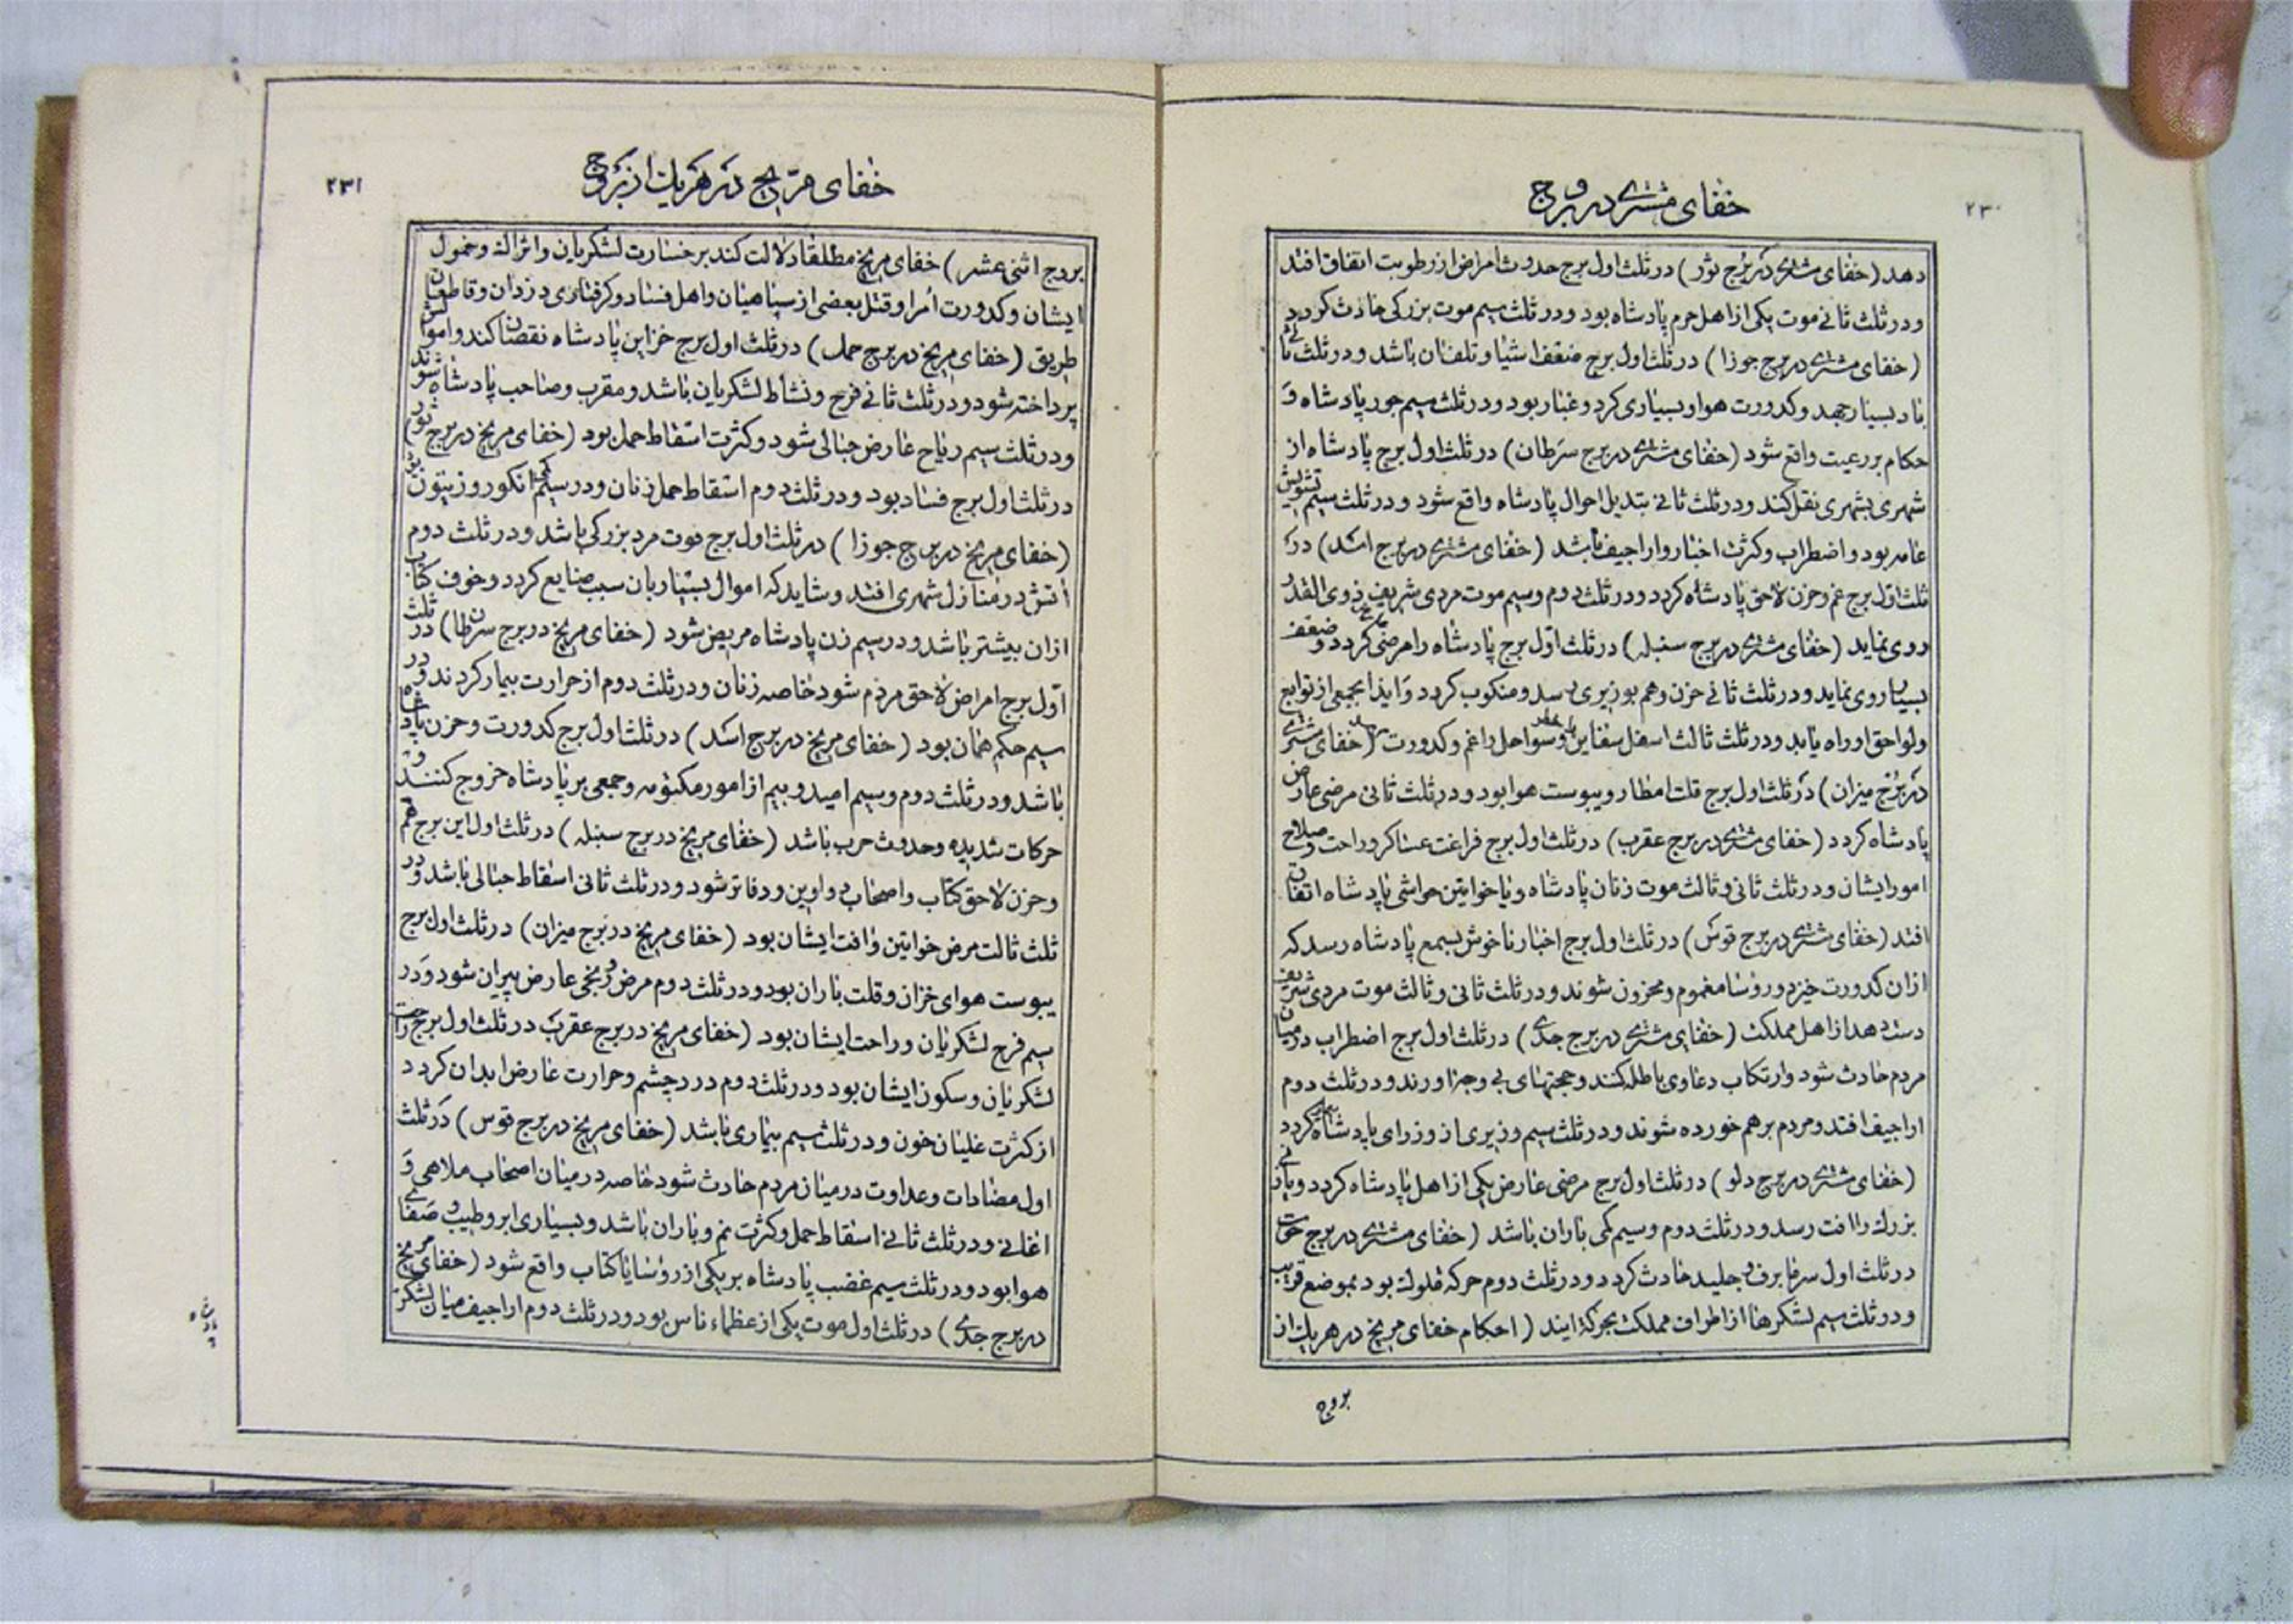 ۲۳۰
خفای مشتری در بروج
دهد (خفای مشتری در برج ثور) در ثلث اول برج حدوث امراض از رطوبت اتفاق افتد
و در ثلث ثانی موت یکی از اهل حرم پادشاه بود و در ثلث سیم موت بزرکی حادث کردد
(خفای مشتری در برج جوزا) در ثلث اول برج ضعف اشیا و تلفنان باشد و در ثلث ثانی
باد بسیار جهد و کدورت هوا و بسیاری کرد و غبار بود و در ثلث سیم جور پادشاه و
حکام بر رعیت واقع شود (خفای مشتری در برج سرطان) در ثلث اول برج پادشاه از
شهری بشهری نقل کند و در ثلث ثانی تبدیل احوال پادشاه واقع شود و در ثلث سیم تشویش
عامه بود و اضطراب و کثرت اخبار و اراجیف باشد (خفای مشتری در برج اسد) در
ثلث اول برج غم و حزن لاحق پادشاه کردد و در ثلث دوم و سیم موت مردی شریف ذوی القدر
روی نماید (خفای مشتری در برج سنبله) در ثلث اول برج پادشاه را مرضی کردد و ضعف
بسیار روی نماید و در ثلث ثانی حزن و هم بوزیری رسد و منکوب کردد و ایذا بجمعی از توابع
و لواحق او راه یابد و در ثلث ثالث اسفل سفاین و سواحل را غم و کدورت رسد (خفای مشتری
در برج میزان) در ثلث اول برج قلت امطار و یبوست هوا بود و در ثلث ثانی مرضی عارض
پادشاه کردد (خفای مشتری در برج عقرب) در ثلث اول برج فراغت عساکر و راحت و صلاح
امور ایشان و در ثلث ثانی و ثالث موت زنان پادشاه و یا خواتین حواشی پادشاه اتفاق
افتد (خفای مشتری در برج قوس) در ثلث اول برج اخبار ناخوش بسمع پادشاه رسد که
ازان کدورت خیزد و رؤسا مغموم و محزون شوند و در ثلث ثانی و ثالث موت مردی شریف
دست دهد از اهل مملکت (خفای مشتری در برج جدی) در ثلث اول برج اضطراب در میان
مردم حادث شود و ارتکاب دعاوی باطله کنند و حجتهای بی وجه اورند و در ثلث دوم
اراجیف افتد و مردم بر هم خورده شوند و در ثلث سیم وزیری از وزرای پادشاه کردد
(خفای مشتری در برج دلو) در ثلث اول برج مرضی عارض یکی از اهل پادشاه کردد و یا
بزرك را افت رسد و در ثلث دوم و سیم کمی باران باشد (خفای مشتری در برج حوت
در ثلث اول سرما برف و جلید حادث کردد و در ثلث دوم حرکه ملوك بود بموضع قریب
و در ثلث سیم لشکرها از اطراف مملکت بحرکه ایند (احکام خفای مریخ در هر یك از
بروج
۲۳۱
خفای مریخ در هر یك از بروج
بروج اثنی عشر) خفای مریخ مطلقا دلالت کند بر خسارت لشکریان و اتراك و خمول
ایشان و کدورت امرا و قتل بعضی از سپاهیان و اهل فساد و کرفتاری دزدان و قاطعان
طریق (خفای مریخ در برج حمل) در ثلث اول برج خزاین پادشاه نقصان کند و اموال
پرداخته شود و در ثلث ثانی فرح و نشاط لشکریان باشد و مقرب و صاحب پادشاه شوند
و در ثلث سیم ریاح عارض حبالی شود و کثرت اسقاط حمل بود (خفای مریخ در برج ثور)
در ثلث اول برج فساد بود و در ثلث دوم اسقاط حمل زنان و در سیم کمی انکور و زیتون بود
(خفای مریخ در برج جوزا) در ثلث اول برج موت مرد بزرکی باشد و در ثلث دوم
اتش در منازل شهری افتد و شاید که اموال بسیار بان سبب ضایع کردد و خوف کتاب
ازان بیشتر باشد و در سیم زن پادشاه مریض شود (خفای مریخ در برج سرطان) در ثلث
اول برج امراض لاحق مردم شود خاصه زنان و در ثلث دوم از حرارت بیمار کردند و در
سیم حکم همان بود (خفای مریخ در برج اسد) در ثلث اول برج کدورت و حزن پادشاه
باشد و در ثلث دوم و سیم امید و بیم از امور مکتومه و جمعی بر پادشاه خروج کنند و
حرکات شدیده و حدوث حرب باشد (خفای مریخ در برج سنبله) در ثلث اول این برج هم
و حزن لاحق کتاب و اصحاب دواوین و دفاتر شود و در ثلث ثانی اسقاط حبالی باشد و در
ثلث ثالث مرض خواتین و افت ایشان بود (خفای مریخ در برج میزان) در ثلث اول برج
یبوست هوای خزان و قلت باران بود و در ثلث دوم مرض و رنجی عارض پیران شود و در
سیم فرح لشکریان و راحت ایشان بود (خفای مریخ در برج عقرب در ثلث اول برج راحت
لشکریان و سکون ایشان بود و در ثلث دوم درد چشم و حرارت عارض ابدان کردد
از کثرت غلیان خون و در ثلث سیم بیماری باشد (خفای مریخ در برج قوس) در ثلث
اول مضادات و عداوت در میان مردم حادث شود خاصه در میان اصحاب ملاهی و
اغانی و در ثلث ثانی اسقاط حمل و کثرت نم و باران باشد و بسیاری ابر و طیب و صفای
هوا بود و در ثلث سیم غضب پادشاه بر یکی از رؤسا یا کتاب واقع شود (خفای مریخ
در برج جدی) در ثلث اول موت یکی از عظماء ناس بود و در ثلث دوم اراجیف میان لشکر